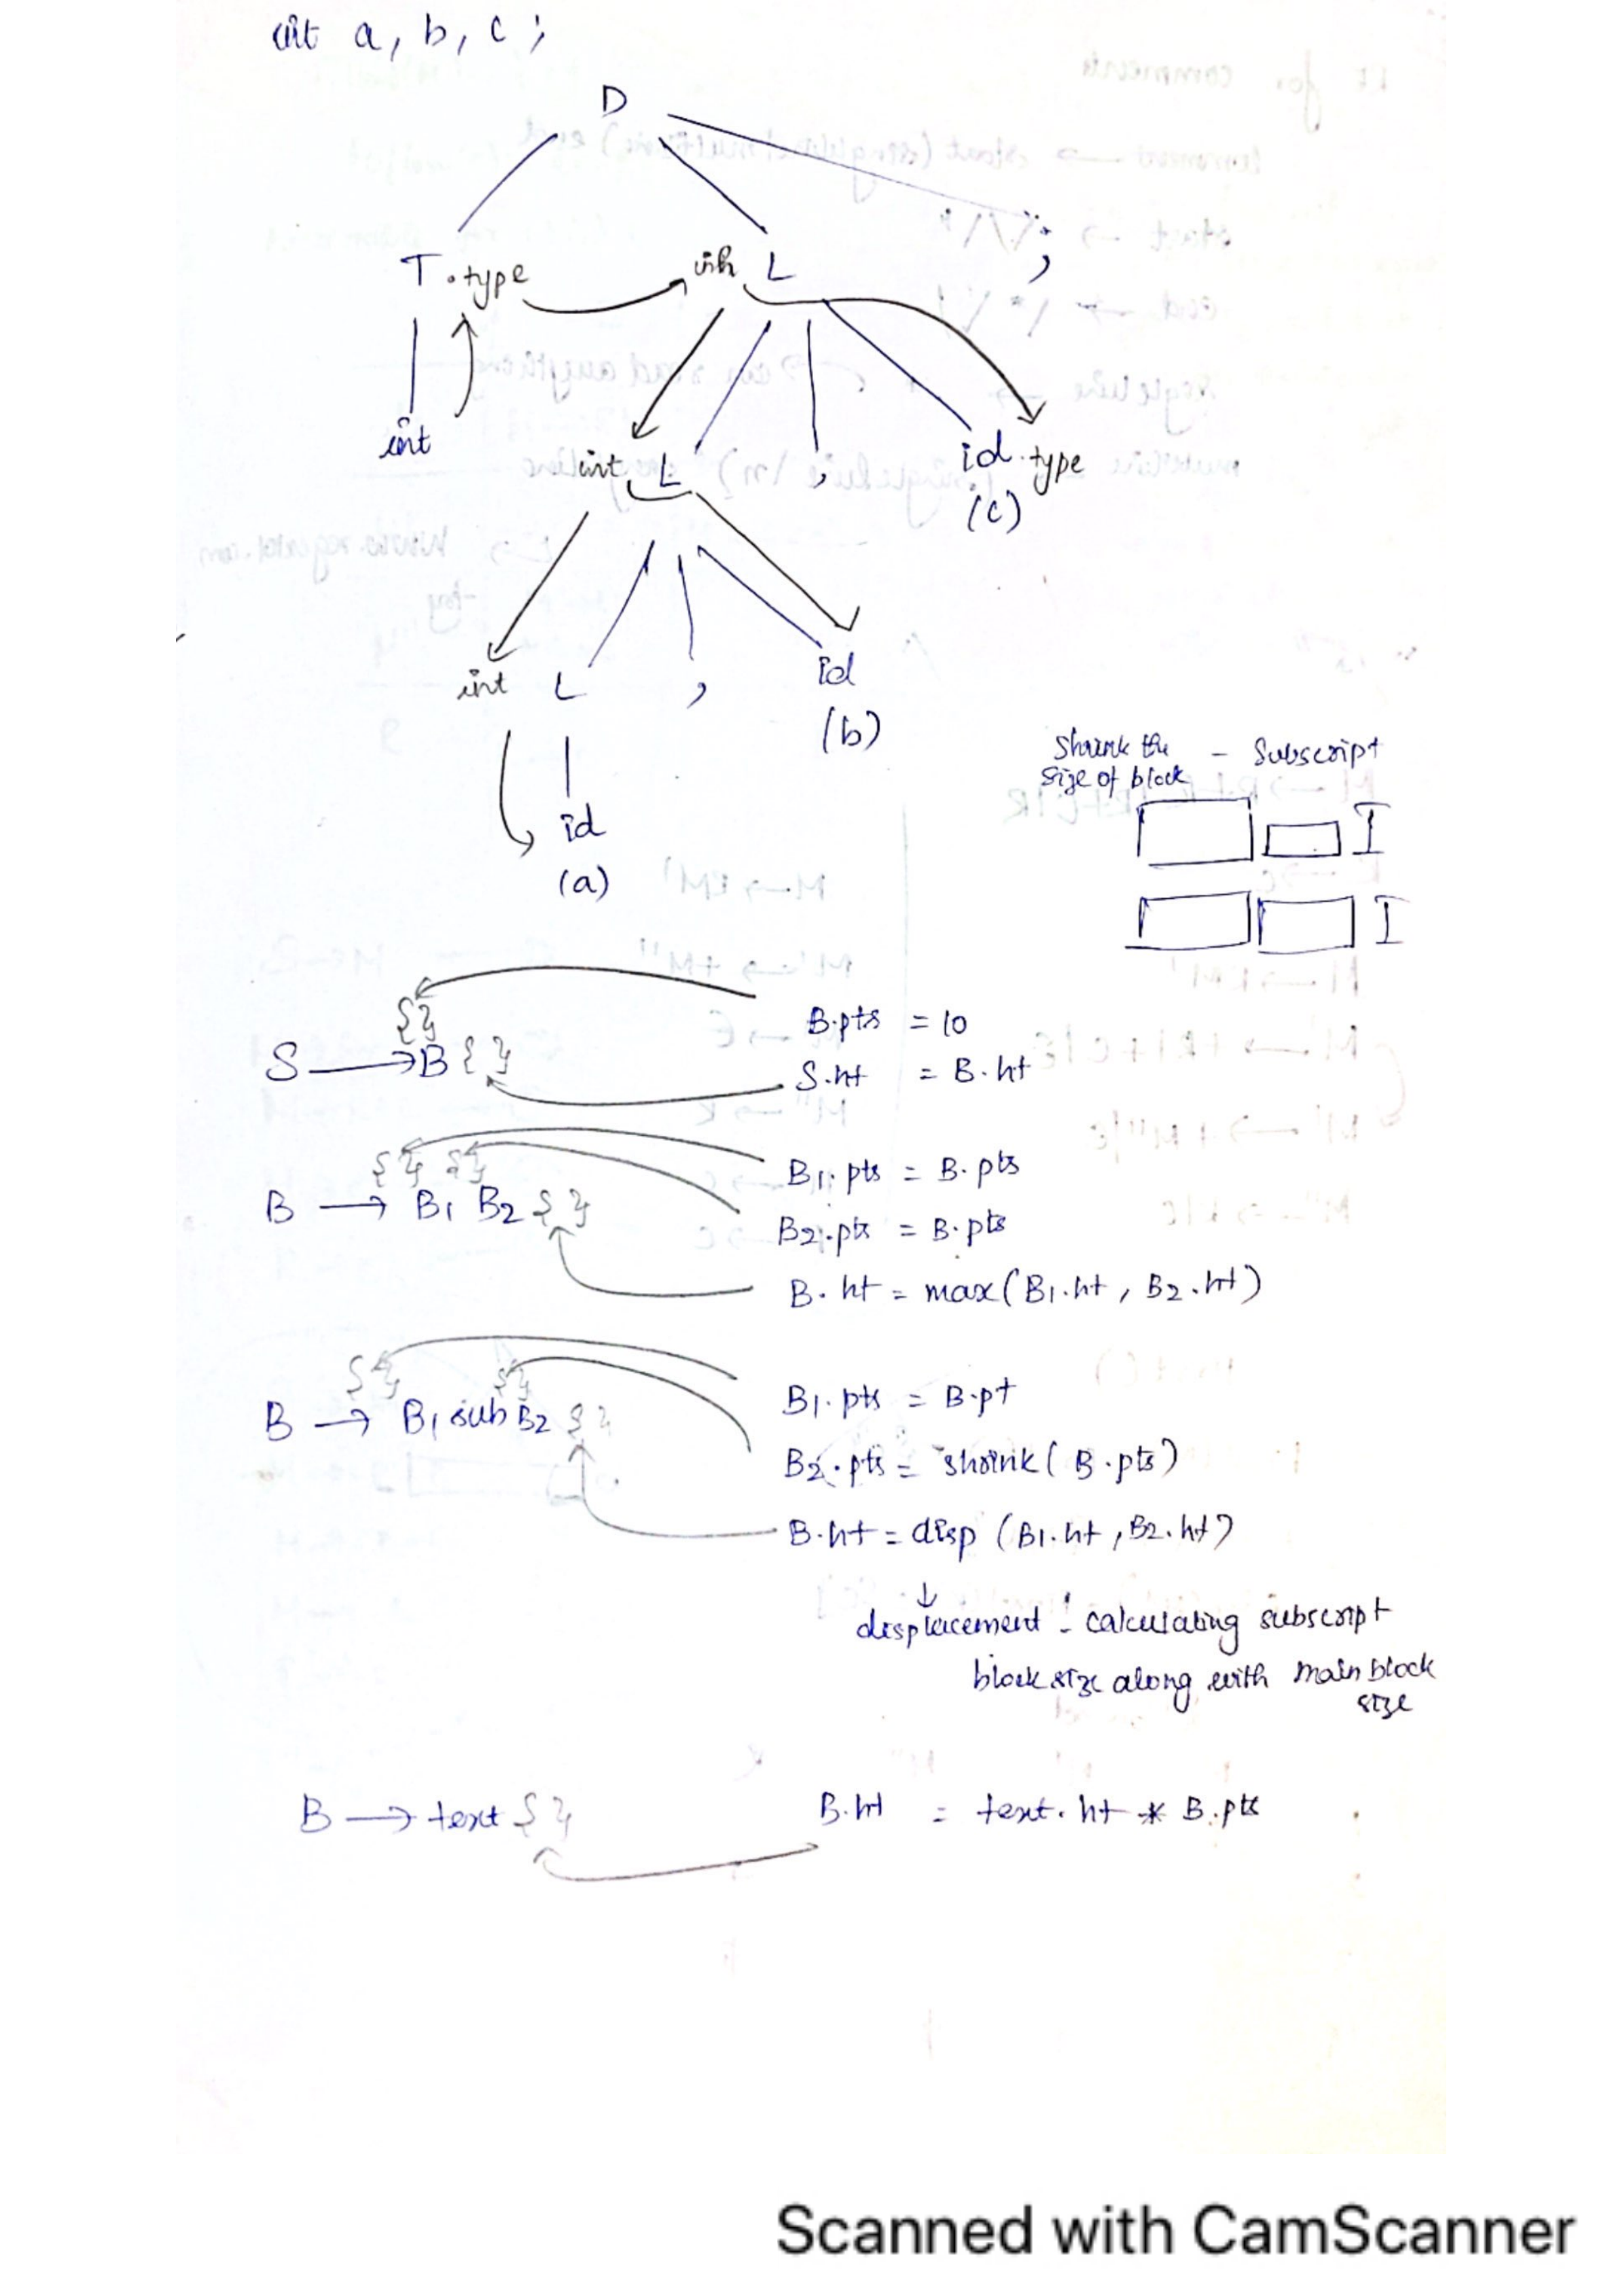 int a, b, c ;
D
T . type inh L ;
int
int L , id . type
(c)
int L , id
(b)
id
(a)
Shrink the - Subscript
size of block
{ }
S → B { }
B.pts = 10
S.ht = B.ht
{ } { }
B → B1 B2 { }
B1.pts = B.pts
B2.pts = B.pts
B.ht = max(B1.ht, B2.ht)
{ } { }
B → B1 sub B2 { }
B1.pts = B.pt
B2.pts = shrink(B.pts)
B.ht = disp (B1.ht, B2.ht)
↓
displacement : calculating subscript
block size along with main block
size
B → text { } B.ht = text.ht * B.pts
Scanned with CamScanner